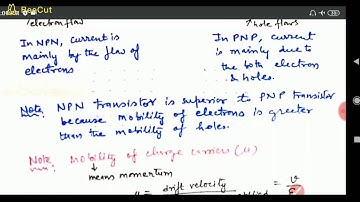 BeeCut
electron flow
hole flows
In NPN, current is
mainly by the flow of
electrons
In PNP, current
is mainly due to
the both electron
& holes.
Note: NPN transistor is superior to PNP transistor
because mobility of electrons is greater
than the mobility of holes.
Note: Mobility of charge carriers (μ)
means momentum
drift velocity
= V